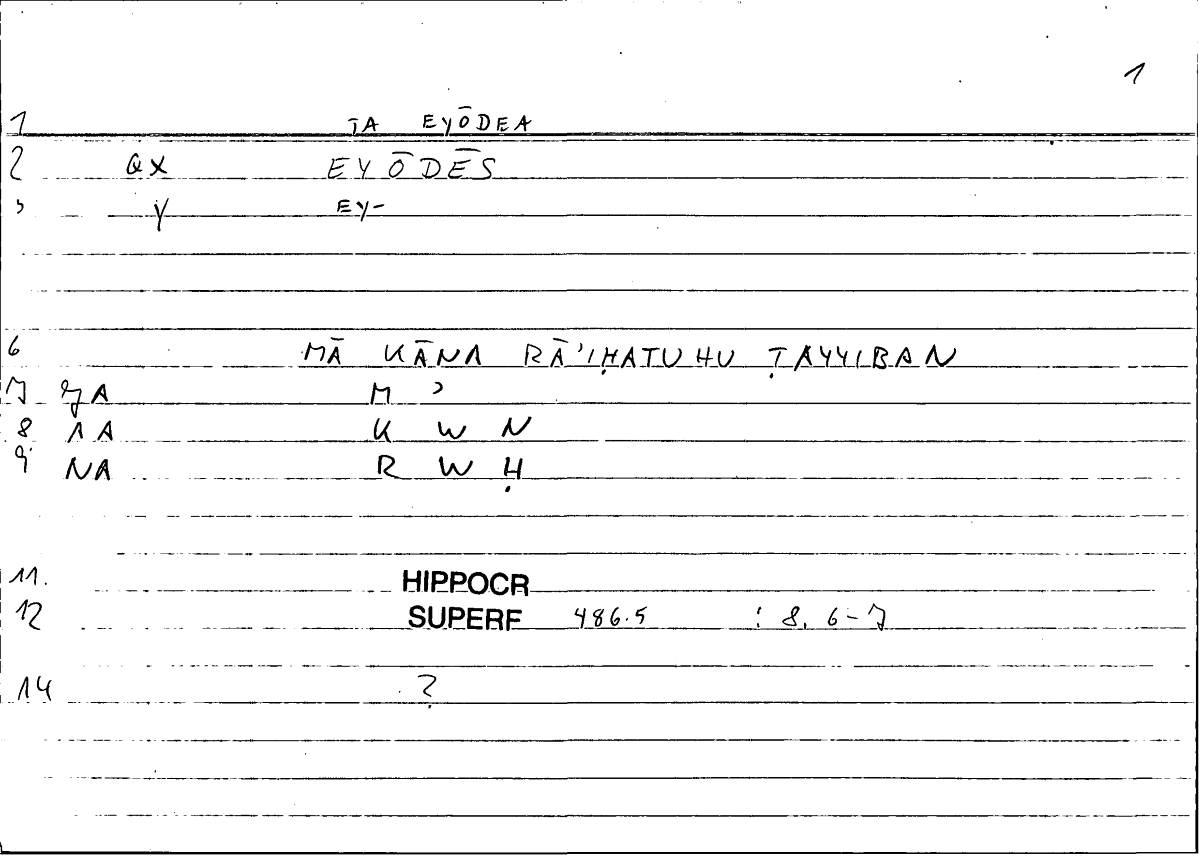 1
1 TA EYŌDEA
2 QX EYŌDĒS
Y EY-
6 MĀ KĀNA RĀ'IḤATUHU ṬAYYIBAN
7 M ʾ
8 AA K W N
9 NA R W Ḥ
11. HIPPOCR
12 SUPERF 486.5 : 8, 6-7
14 ?